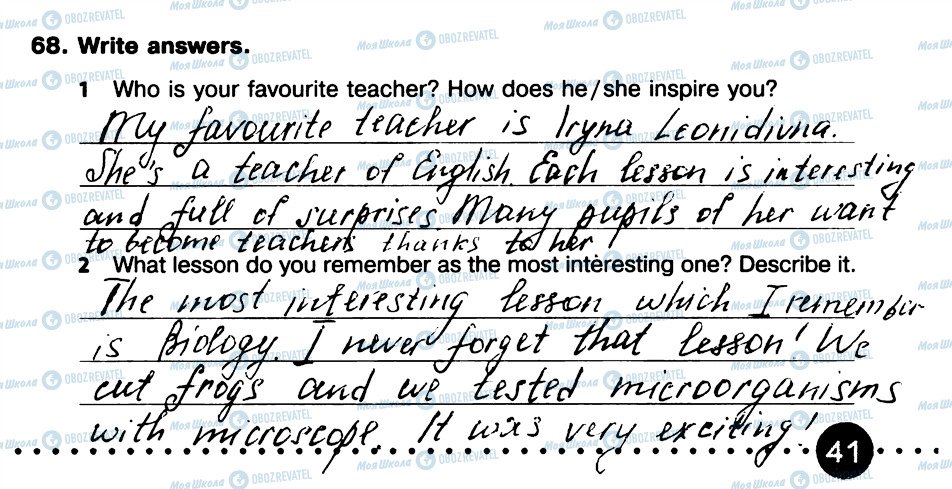 68. Write answers.
1 Who is your favourite teacher? How does he/she inspire you?
My favourite teacher is Iryna Leonidivna.
She's a teacher of English. Each lesson is interesting
and full of surprises. Many pupils of her want
to become teachers thanks to her!
2 What lesson do you remember as the most interesting one? Describe it.
The most interesting lesson which I remember
is Biology. I never forget that lesson! We
cut frogs and we tested microorganisms
with microscope. It was very exciting!
41
Моя Школа OBOZREVATEL